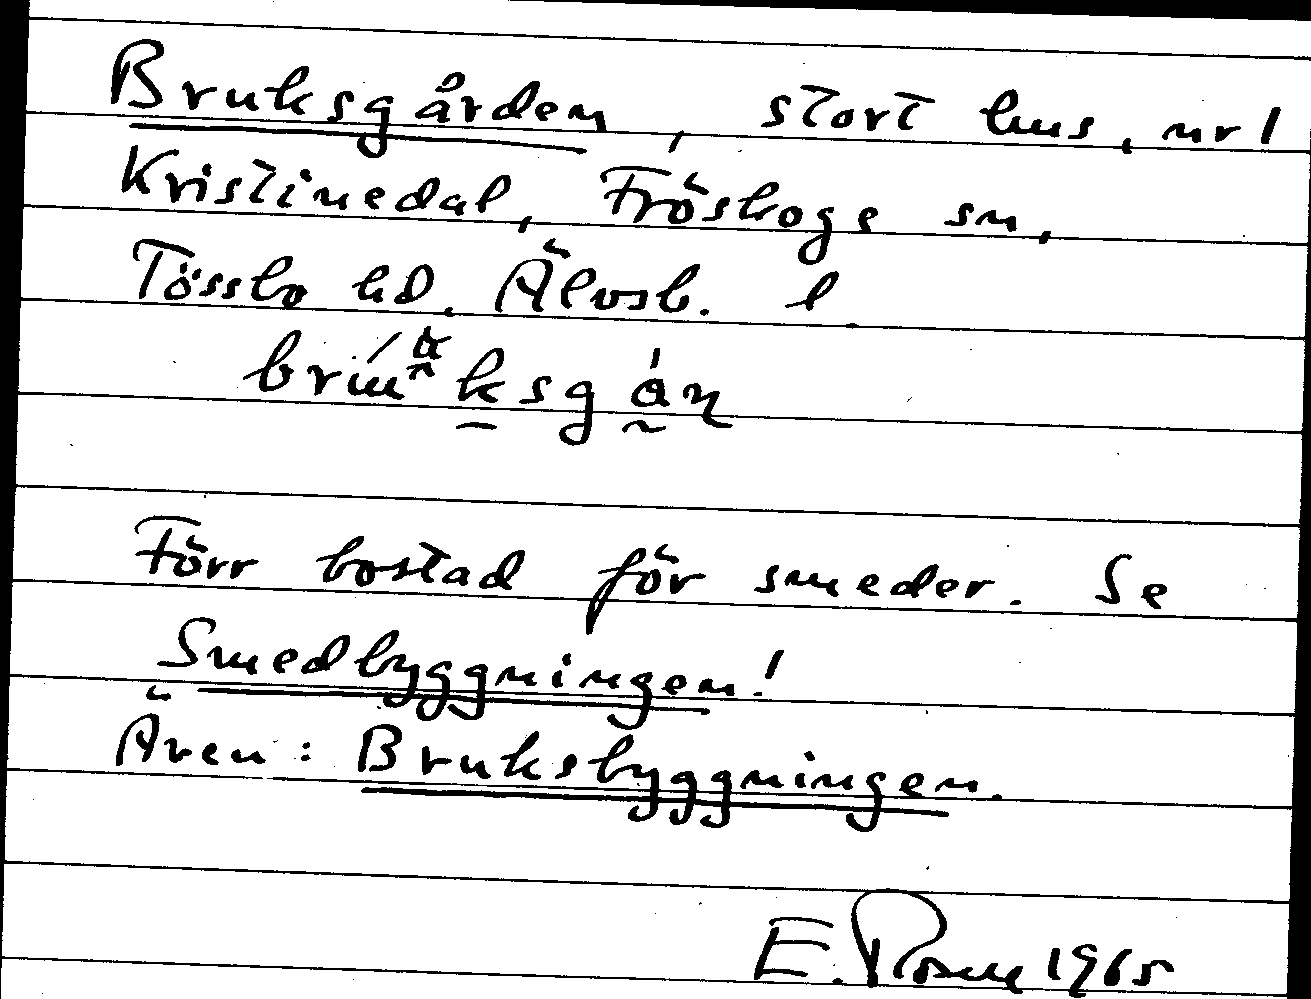 Bruksgården, stort hus, nr 1
Kristinedal, Fröskogs sn,
Tössbo hd. Älvsb. l.
Förr bostad för smeder. Se
Smedbyggningen!
Även: Bruksbyggningen.
E. Rosen 1965